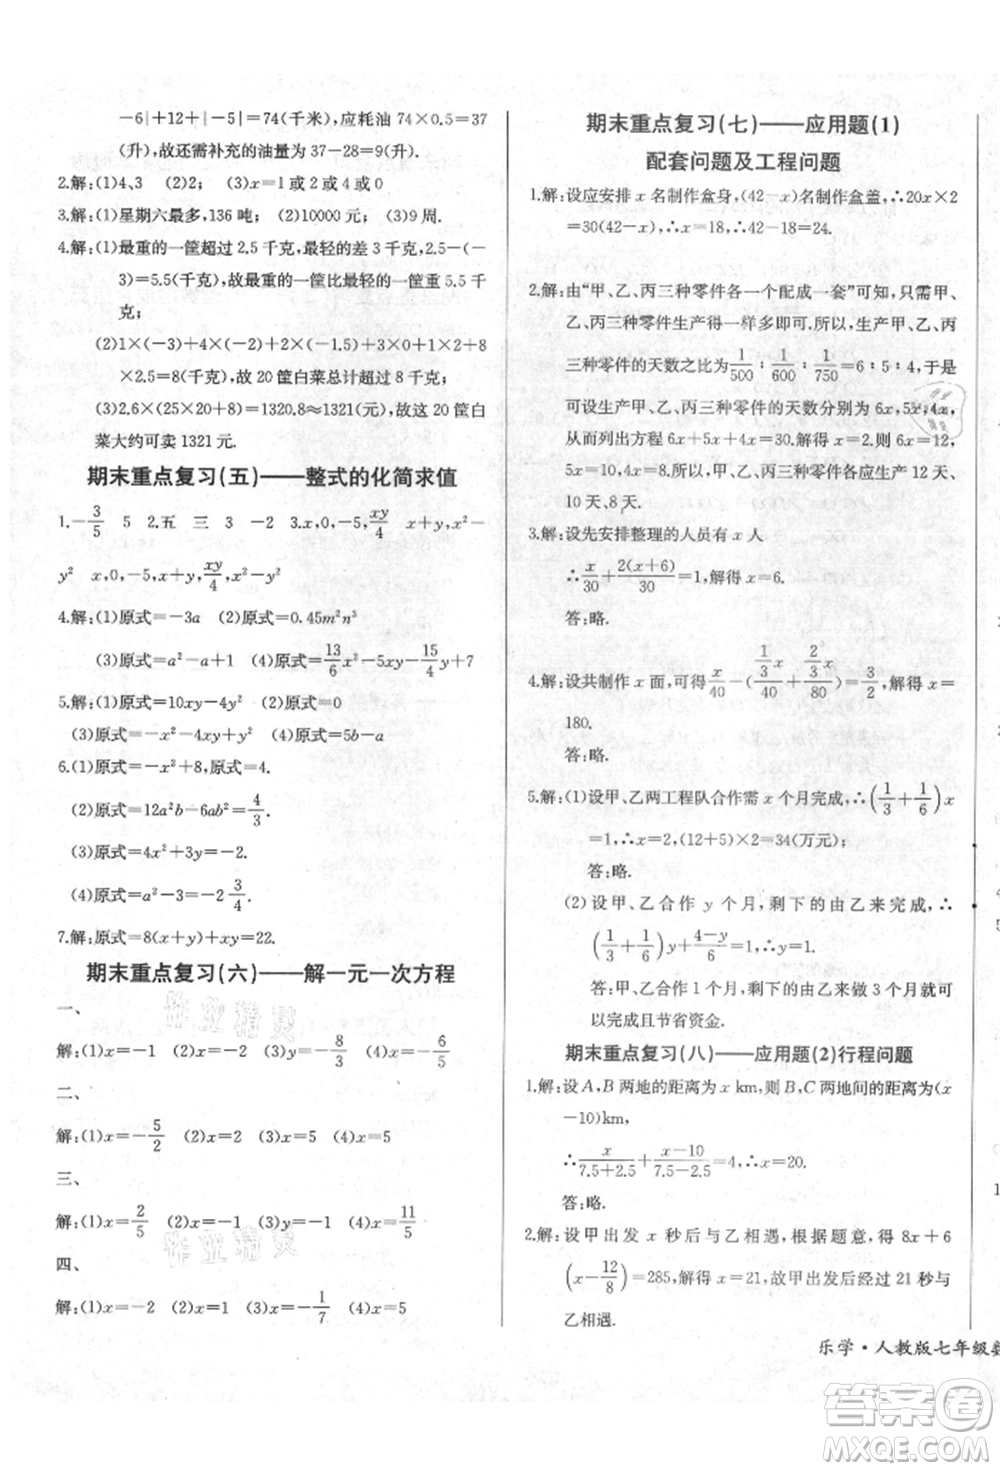 -6|+12+|-5|=74(千米),应耗油 74×0.5=37
(升),故还需补充的油量为 37-28=9(升).
2.解:(1)4、3 (2)2 (3)-2 或 4 (4)0
3.解:(1)星期六最多,136 吨; (2)10000 元. (3)9 周.
4.解:(1)最重的一筐超过 2.5 千克,最轻的差 3 千克,2.5-(-
3)=5.5(千克),故最重的一筐比最轻的一筐重 5.5 千
克;
(2)1×(-3)+4×(-2)+2×(-1.5)+3×0+1×2+8×
2.5=8(千克),故 20 筐白菜总计超过 8 千克;
(3)2.6×(25×20+8)=1320.8≈1321(元),故这 20 筐白
菜大约可卖 1321 元.
期末重点复习(五)——整式的化简求值
1.-3/5 5 2.五 三 3 -2 3.x,0,-5,xy/4 x+y,x²-
y² x,0,-5,x+y,xy/4,x²-y²
4.解:(1)原式=-3a (2)原式=0.45m²n³
(3)原式=a²-a+1 (4)原式=13/6x²-5xy-15/4y²
5.解:(1)原式=10xy-4y² (2)原式=2
(3)原式=-x²-4xy+y² (4)原式=5b-a
6.(1)原式=-x²+8,原式=4.
(2)原式=12a²b-6ab²=4/3.
(3)原式=4x²+3x=-2.
(4)原式=a²-3=-2 3/4.
7.解:原式=8(x+y)+xy=22.
期末重点复习(六)——解一元一次方程
一、
解:(1)x=-1 (2)x=1 (3)y=-8/3 (4)x=-6/5
二、
解:(1)x=-5/2 (2)x=2 (3)x=1 (4)x=5
三、
解:(1)x=2/5 (2)x=-1 (3)x=-4 (4)x=11/5
四、
解:(1)x=-2 (2)x=2 (3)x=-1/7 (4)x=5
期末重点复习(七)——应用题(1)
配套问题及工程问题
1.解:设应安排 x 名制作盒身,(42-x)名制作盒盖,∴20x×2
=30(42-x),∴x=18,42-18=24.
2.解:由“甲、乙、丙三种零件各一个配成一套”可知,只需甲、
乙、丙三种零件生产得一样多即可.所以,生产甲、乙、丙
三种零件的天数之比为1/500:1/600:1/750=6:5:4,于是
可设生产甲、乙、丙三种零件的天数分别为 6x,5x,4x,
从而列出方程 6x+5x+4x=30.解得 x=2,6x=12,
5x=10,4x=8.所以,甲、乙、丙三种零件各应生产 12 天、
10 天、8 天.
3.解:设先安排整理的人员有 x 人
∴x/30+2(x+6)/30=1,解得 x=6.
答:略.
4.解:设共制作 x 面,可得x/40-(1/3x/40+2/3x/80)=3/2,解得 x=
180.
答:略.
5.解:(1)设甲、乙两工程队合作需 x 个月完成,∴(1/3+1/6)x
=1,∴x=2,(12+5)×2=34(万元);
答:略.
(2)设甲、乙合作 y 个月,剩下的由乙来完成,∴
(1/3+1/6)y+4-y/6=1,∴y=1.
答:甲、乙合作 1 个月,剩下的由乙来做 3 个月就可
以完成且节省资金.
期末重点复习(八)——应用题(2)行程问题
1.解:设 A,B 两地的距离为 x km,则 B,C 两地间的距离为(x
-10)km,
∴x/7.5+2.5+x-10/7.5-2.5=4,∴x=20.
答:略.
2.解:设甲出发 x 秒后与乙相遇,根据题意,得 8x+6
(x-12/8)=285,解得 x=21,故甲出发后经过 21 秒与
乙相遇.
乐学·人教版七年级
答案圈
MXQE.COM